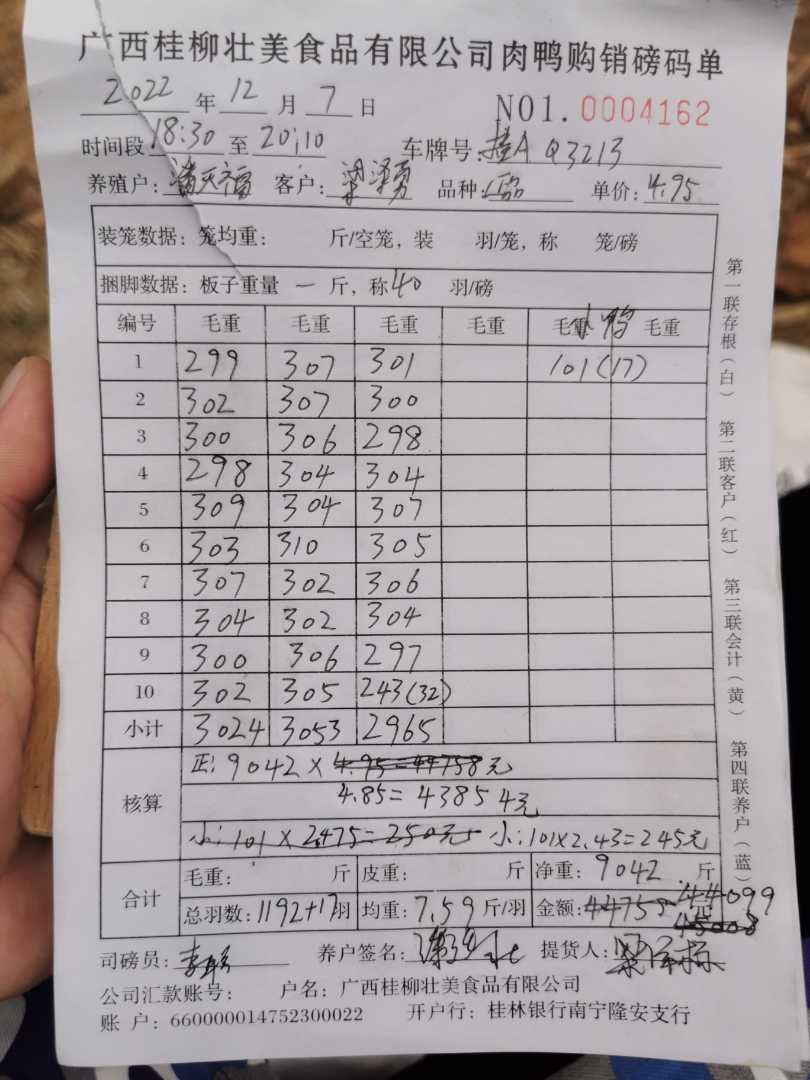 广西桂柳壮美食品有限公司肉鸭购销磅码单
2022 年 12 月 7 日 NO1.0004162
时间段 18:30 至 20:10 车牌号: 桂A Q3213
养殖户: 客户: 梁泽勇 品种: 单价: 4.95
装笼数据: 笼均重: 斤/空笼, 装 羽/笼, 称 笼/磅
捆脚数据: 板子重量 一 斤, 称 40 羽/磅
编号 毛重 毛重 毛重 毛重 毛重 小鸭 毛重
1 299 307 301 101(17)
2 302 307 300
3 300 306 298
4 298 304 304
5 309 304 307
6 303 310 305
7 307 302 306
8 304 302 304
9 300 306 297
10 302 305 243(32)
小计 3024 3053 2965
核算 正: 9042 × 4.95=44758元
4.85=43854元
小: 101×2.475=250元 小: 101×2.43=245元
合计 毛重: 斤 皮重: 斤 净重: 9042 斤
总羽数: 1192+17羽 均重: 7.59 斤/羽 金额: 44758 44099
45008
司磅员: 养户签名: 提货人:
公司汇款账号: 户名: 广西桂柳壮美食品有限公司
账 户: 660000014752300022 开户行: 桂林银行南宁隆安支行
第一联存根(白) 第二联客户(红) 第三联会计(黄) 第四联养户(蓝)